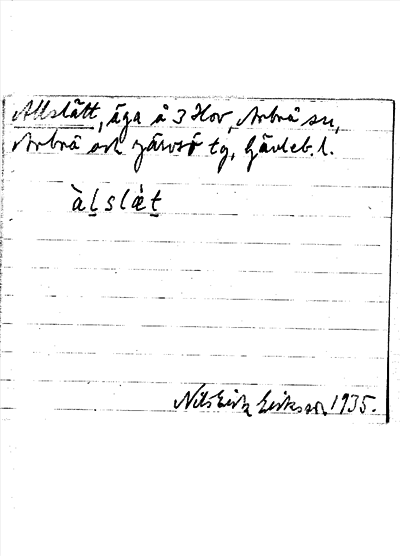 Allslätt, äga å 3 Hov, Arbrå sn,
Arbrå och Järvsö tg, Gävleb. l.
àl̲slæ̀t̲
Nils Erik Eriksson 1935.